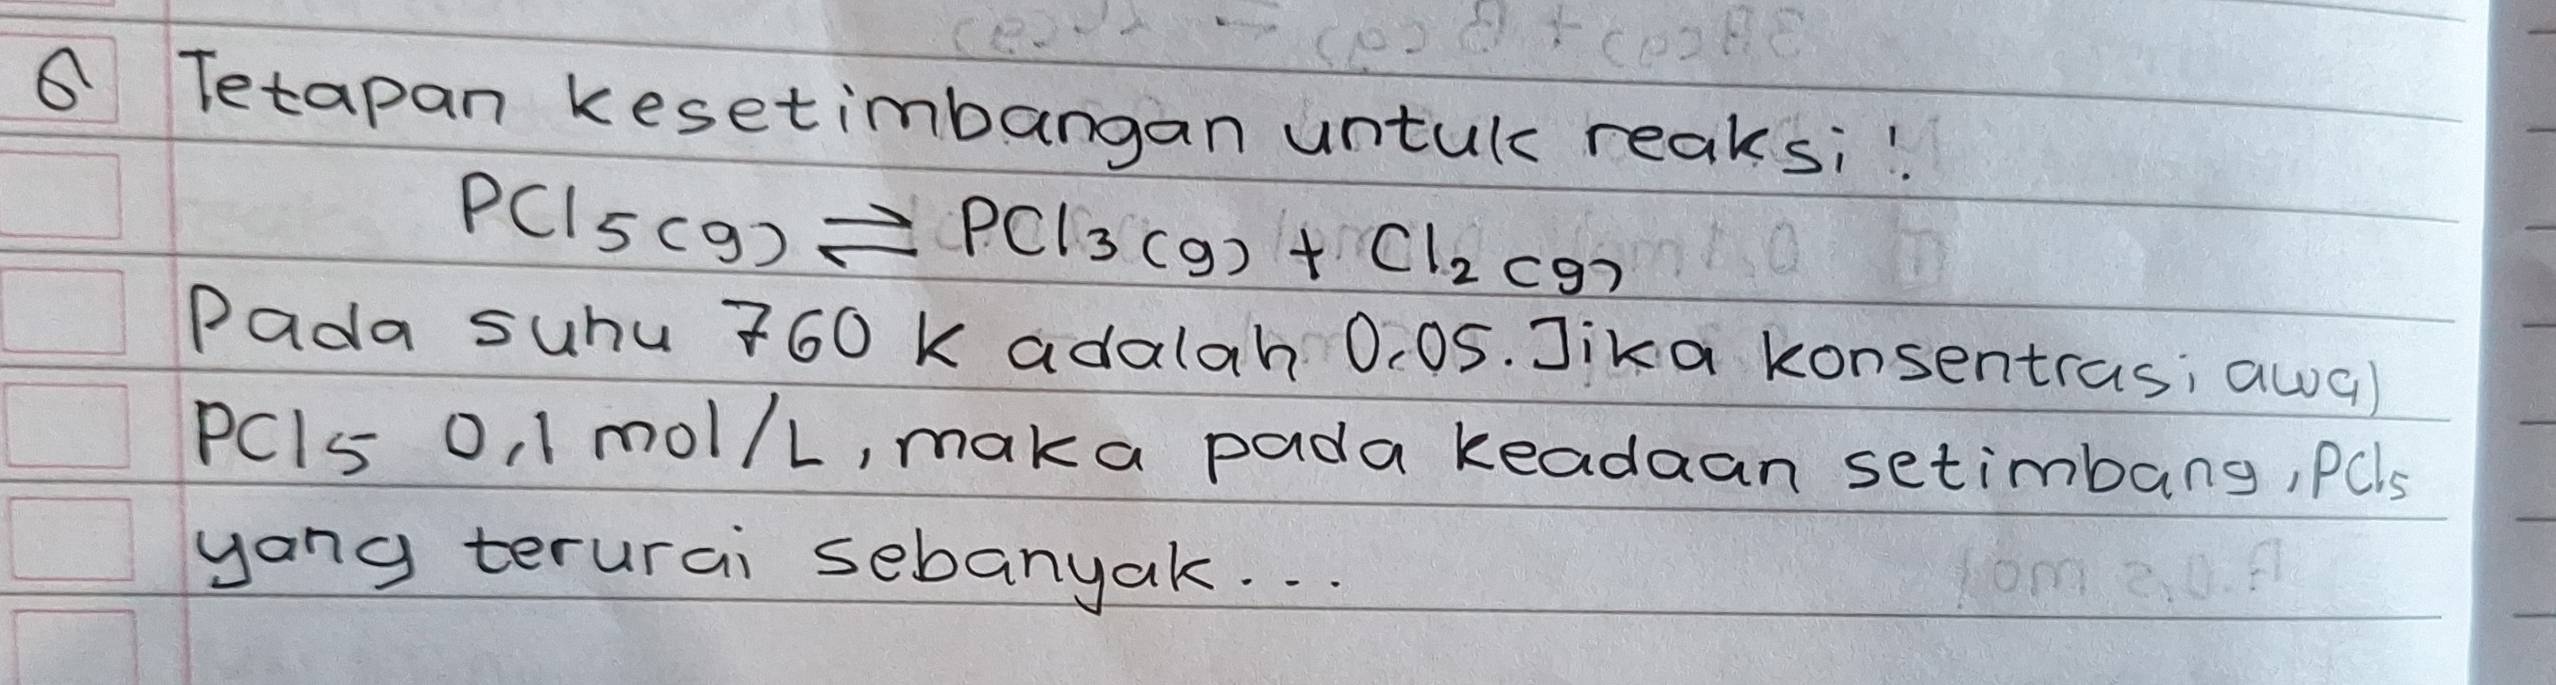 6 Tetapan kesetimbangan untuk reaksi!
PCl5(g) ⇌ PCl3(g) + Cl2(g)
Pada suhu 760 K adalah 0,05. Jika konsentrasi awal
PCl5 0,1 mol/L, maka pada keadaan setimbang, PCl5
yang terurai sebanyak...